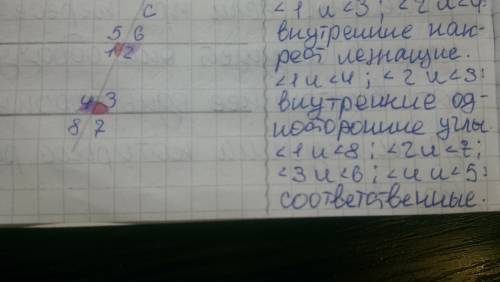 c
5 6
1 2
4 3
8 7
<1 и <3 ; <2 и <4
внутренние нак-
рест лежащие.
<1 и <4 ; <2 и <3:
внутренние од-
носторонние углы
<1 и <8 ; <2 и <7 ;
<3 и <6 ; <4 и <5:
соответственные.